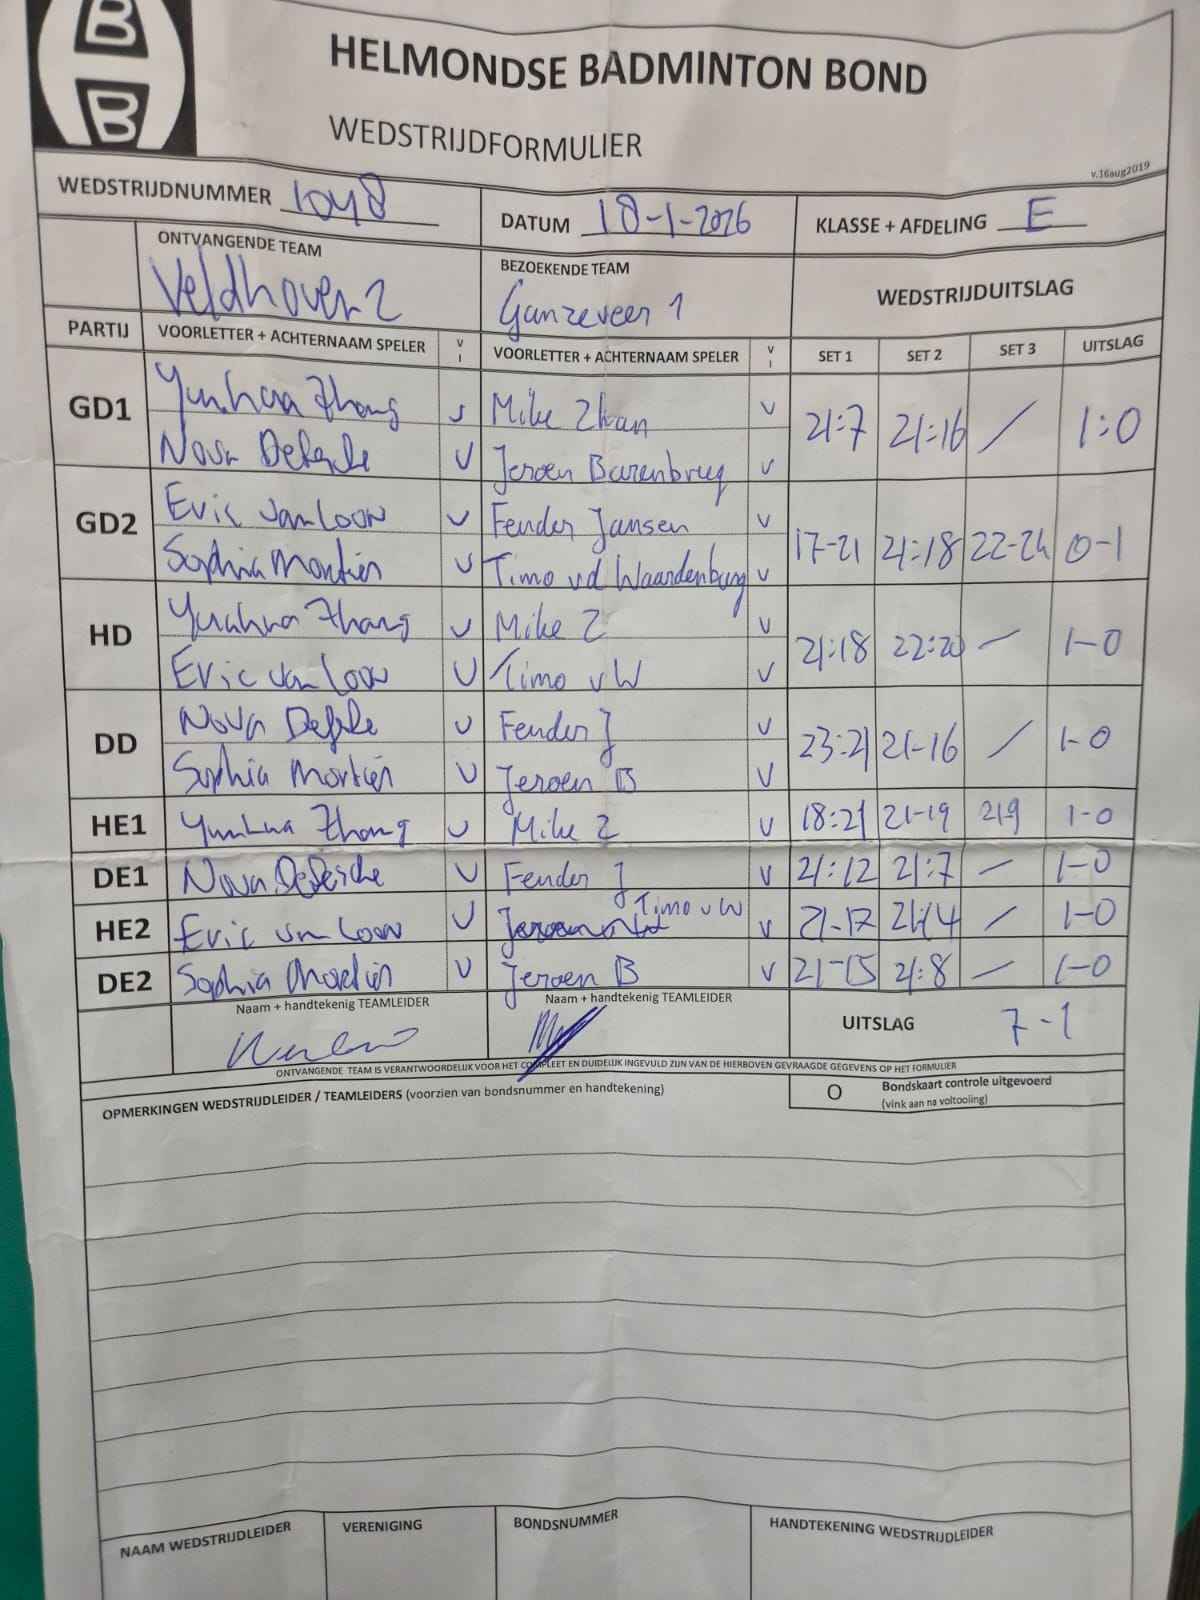 B
B
HELMONDSE BADMINTON BOND
WEDSTRIJDFORMULIER
v.16aug2019
WEDSTRIJDNUMMER 1048 DATUM 18-1-2026 KLASSE + AFDELING E
ONTVANGENDE TEAM BEZOEKENDE TEAM WEDSTRIJDUITSLAG
Veldhoven 2 Ganzeveer 1
PARTIJ VOORLETTER + ACHTERNAAM SPELER V I VOORLETTER + ACHTERNAAM SPELER V I SET 1 SET 2 SET 3 UITSLAG
GD1 Yunhua Zhang v Mike Zhan v 21:7 21:16 / 1:0
Nova v Jeroen Barenbrug v
GD2 Eric van Loon v Fender Jansen v 17-21 21:18 22-24 0-1
Sophia Mortier v Timo vd Waardenburg v
HD Yunhua Zhang v Mike Z v 21:18 22:20 – 1-0
Eric van Loon v Timo vW v
DD Nova v Fender J v 23:21 21-16 / 1-0
Sophia Mortier v Jeroen B v
HE1 Yunhua Zhang v Mike Z v 18:21 21-19 21-9 1-0
DE1 Nova v Fender J v 21:12 21:7 – 1-0
HE2 Eric van Loon v Timo v W v 21-17 21:14 / 1-0
DE2 Sophia Mortier v Jeroen B v 21-15 21:8 – 1-0
Naam + handtekenig TEAMLEIDER Naam + handtekenig TEAMLEIDER UITSLAG 7-1
ONTVANGENDE TEAM IS VERANTWOORDELIJK VOOR HET COMPLEET EN DUIDELIJK INGEVULD ZIJN VAN DE HIERBOVEN GEVRAAGDE GEGEVENS OP HET FORMULIER
OPMERKINGEN WEDSTRIJDLEIDER / TEAMLEIDERS (voorzien van bondsnummer en handtekening) O Bondskaart controle uitgevoerd
(vink aan na voltooiing)
NAAM WEDSTRIJDLEIDER VERENIGING BONDSNUMMER HANDTEKENING WEDSTRIJDLEIDER